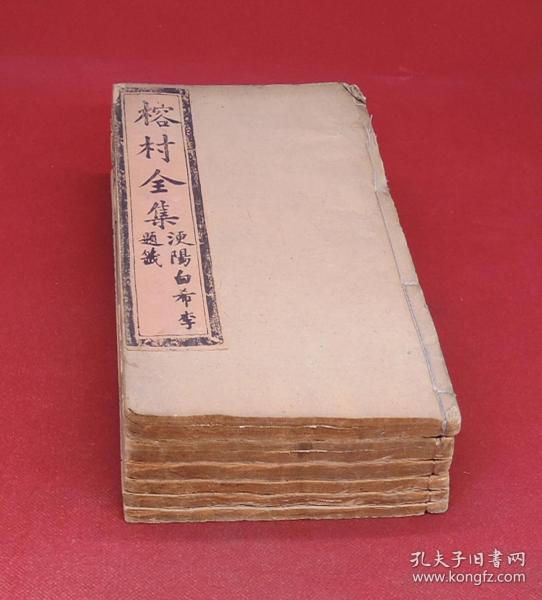 榕村全集
浭陽白希李
題籤
孔夫子旧書网
www.kongfz.com